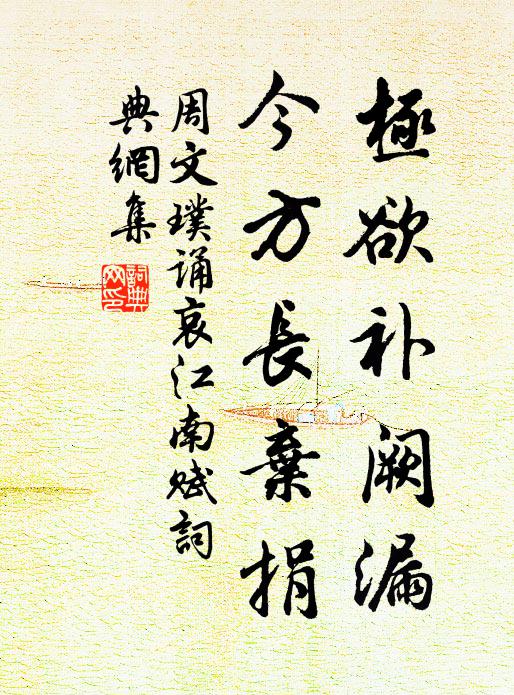 極欲补阙漏
今方長棄捐
周文璞诵哀江南赋詞
典網集
詞典网印